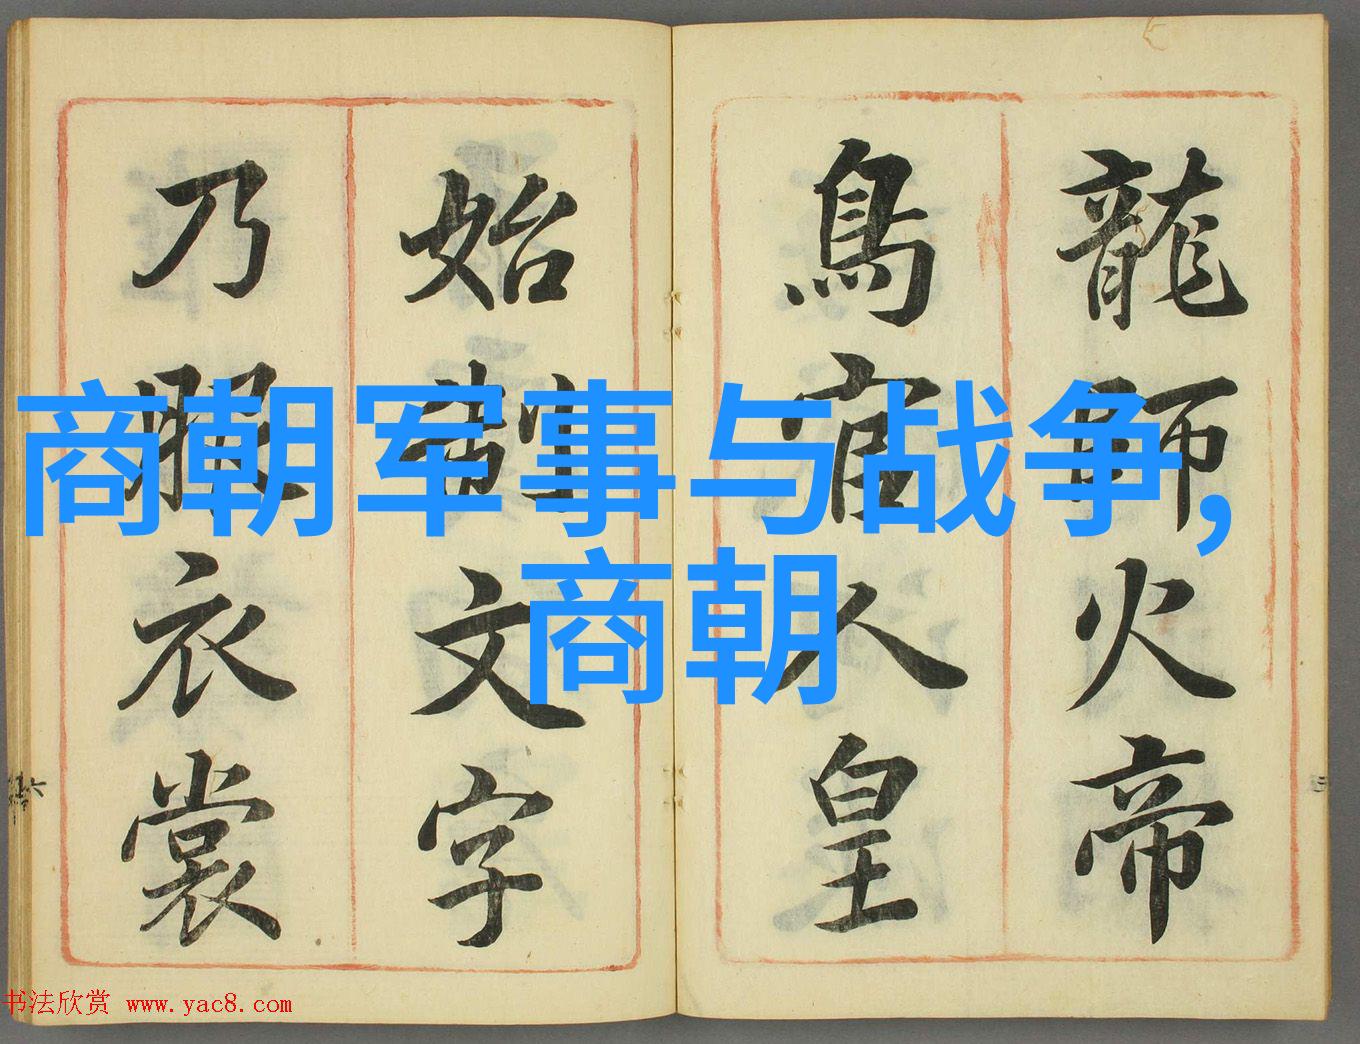 龍師火帝
鳥官人皇
始制文字
乃服衣裳
商朝军事与战争,
商朝
书法欣赏 www.yac8.com